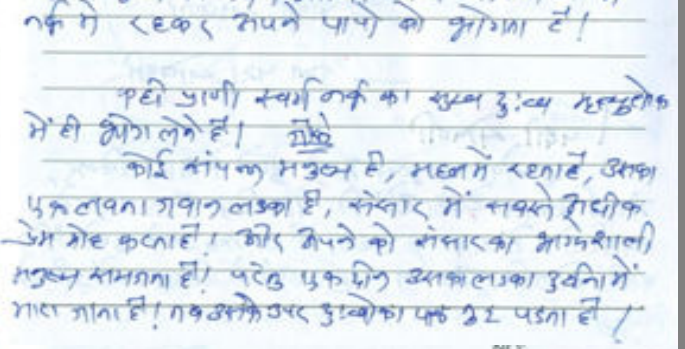 नर्क में रहकर अपने पापो को भोगता है!
कही प्राणी स्वर्ग नर्क का सुख दुःख मृत्युलोक
में ही भोग लेते है!
कोई संपन्न मनुष्य है, महलमें रहताहै, उसका
एकलवता जवान लडका है, संसार में सबसे अधीक
प्रेम मोह करताहै! और अपने को संसारका भाग्यशाली
मनुष्य समजता है! परंतु एक दीन उसका लडका दुर्घटनामें
मारा जाता है! तब उसके उपर दुःखोका पहाड टुट पडता है!